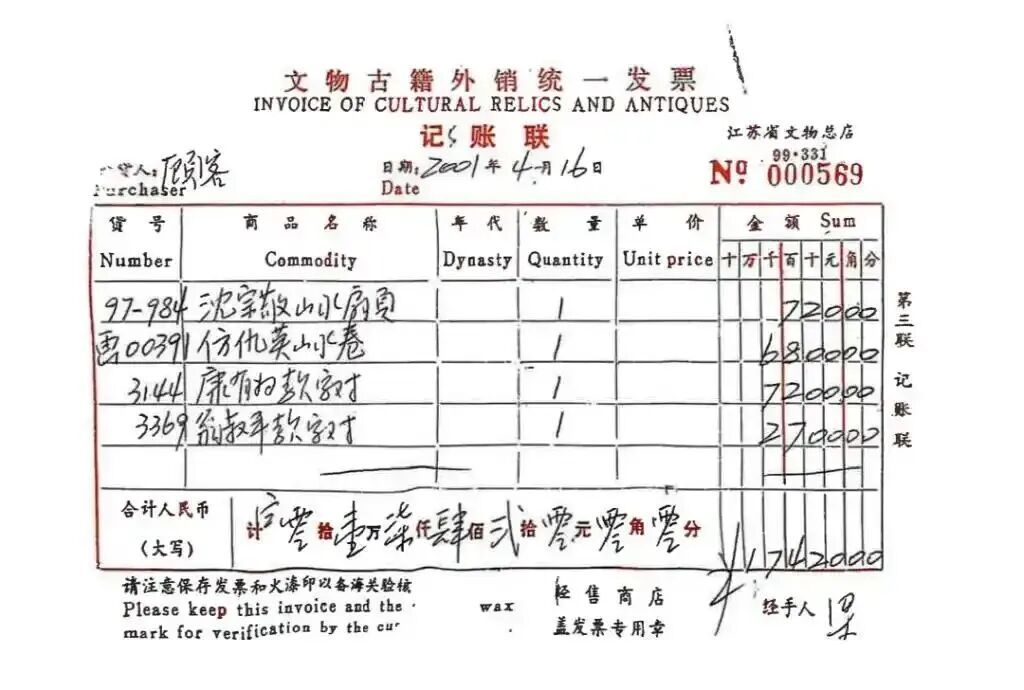 文物古籍外销统一发票
INVOICE OF CULTURAL RELICS AND ANTIQUES
记账联
江苏省文物总店
99·331
货人: 顾客
Purchaser
日期: 2001年4月16日
Date
Nº 000569
货号 商品名称 年代 数量 单价 金额 Sum
Number Commodity Dynasty Quantity Unit price 十万千百十元角分
97-984 沈宗敬山水扇页 1 72000
画00391 仿仇英山水卷 1 680000
3144 康有为款字对 1 720000
3369 翁叔平款字对 1 270000
合计人民币
(大写)
计 零拾壹万柒仟肆佰贰拾零元零角零分
¥1742000
请注意保存发票和火漆印以备海关验核
Please keep this invoice and the wax
mark for verification by the cur
经售商店
盖发票专用章
经手人
第三联 记账联